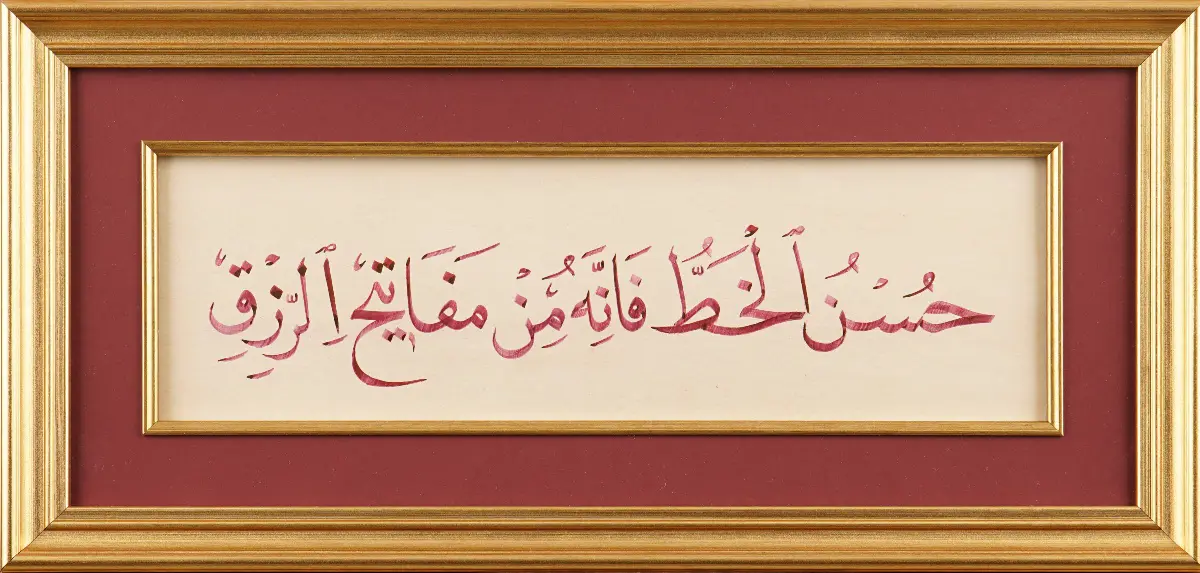 حُسْنُ ٱلْخَطُّ فَاِنَّهُ مِنْ مَفَاتِحِ ٱلرِّزْقِ